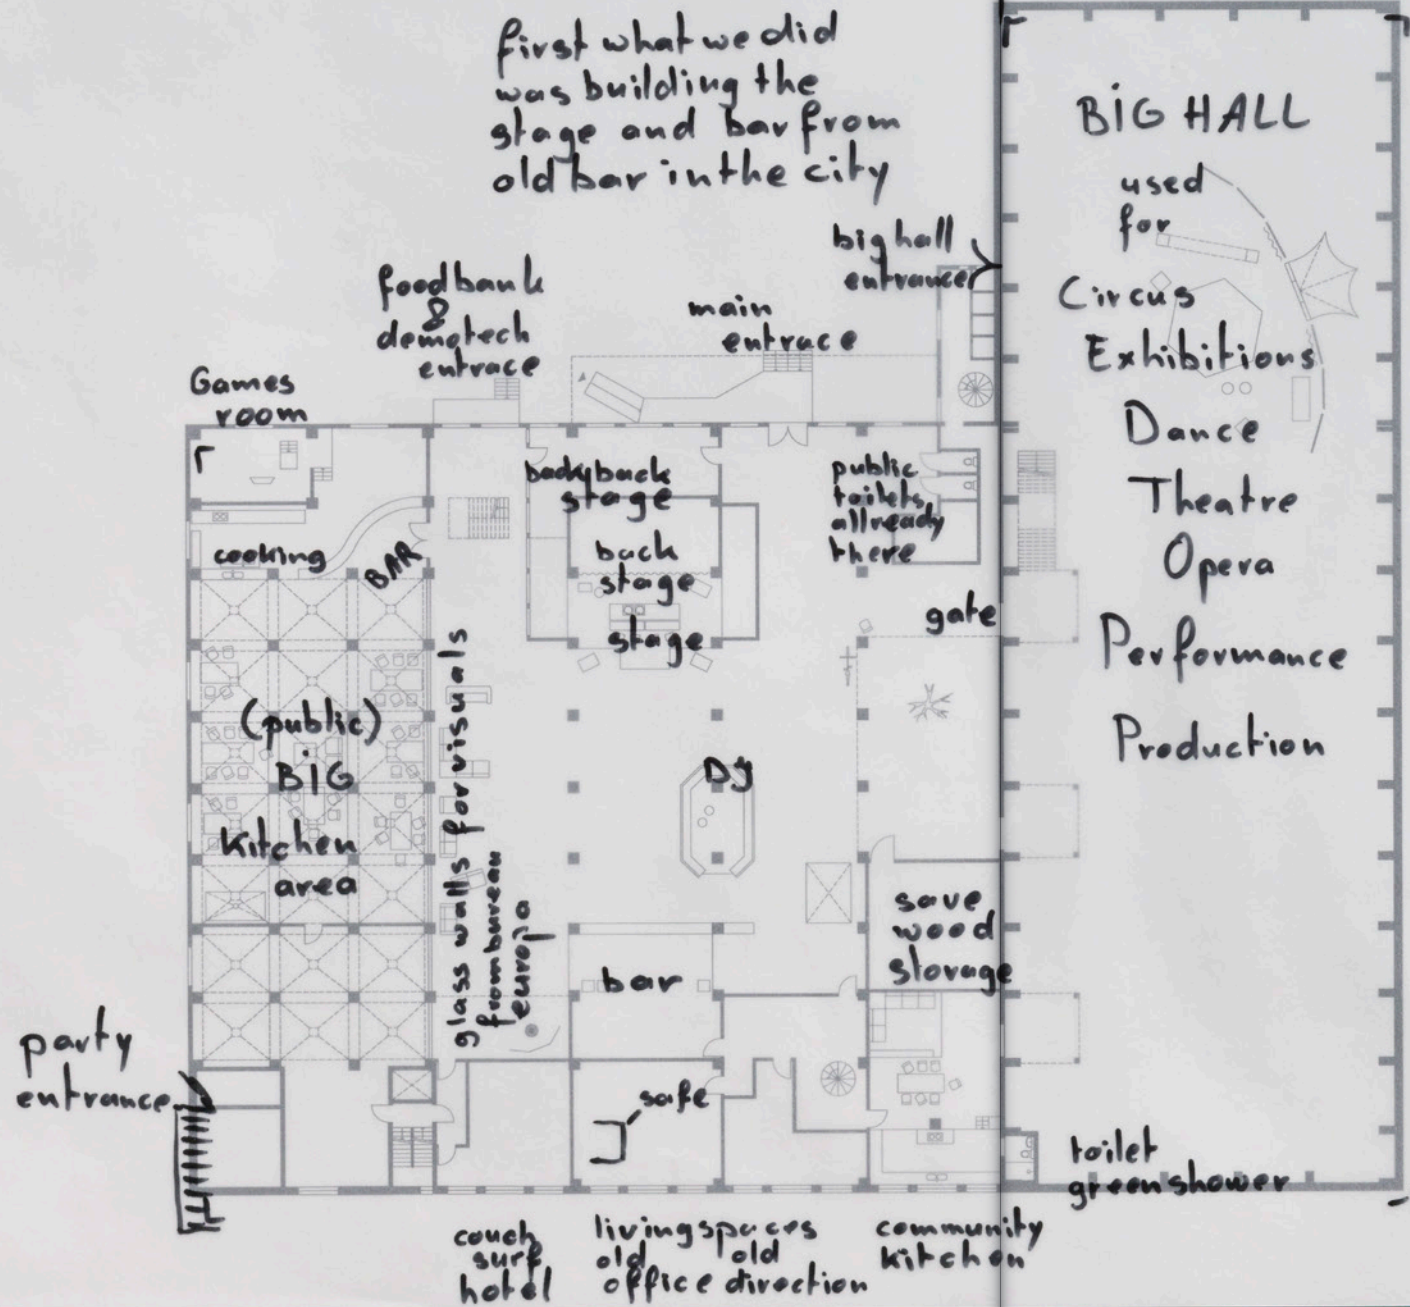 first what we did
was building the
stage and bar from
old bar in the city
BIG HALL
used
for
Circus
Exhibitions
Dance
Theatre
Opera
Performance
Production
big hall
entrance
foodbank
&
demotech
entrace
main
entrace
Games
room
backyback
stage
back
stage
stage
public
toilets
allready
there
cooking
BAR
gate
(public)
BIG
Kitchen
area
glass walls for visuals
from bureau
europa
DJ
bar
save
wood
storage
party
entrance
safe
toilet
greenshower
couch
surf
hotel
livingspaces
old old
office direction
community
kitchen